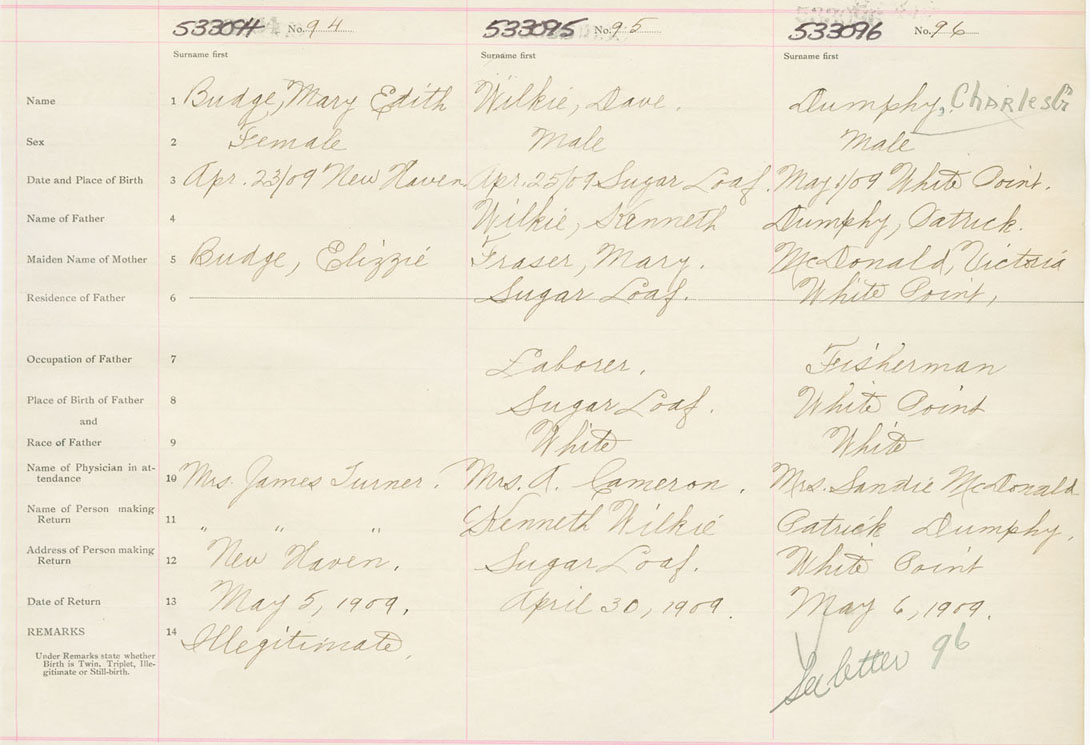 533094 No. 94 533095 No. 95 533096 No. 96
Surname first Surname first Surname first
Name 1 Budge, Mary Edith Wilkie, Dave. Dumphy, Charles G
Sex 2 Female Male Male
Date and Place of Birth 3 Apr. 23/09 New Haven Apr. 25/09 Sugar Loaf. May 1/09 White Point.
Name of Father 4 Wilkie, Kenneth Dumphy, Patrick.
Maiden Name of Mother 5 Budge, Elizzie Fraser, Mary. McDonald, Victoria
Residence of Father 6 Sugar Loaf. White Point,
Occupation of Father 7 Laborer. Fisherman
Place of Birth of Father 8 Sugar Loaf. White Point
and
Race of Father 9 White White
Name of Physician in at-
tendance 10 Mrs. James Turner. Mrs. A. Cameron. Mrs. Sandie McDonald
Name of Person making
Return 11 " " " Kenneth Wilkie Patrick Dumphy,
Address of Person making
Return 12 New Haven. Sugar Loaf. White Point
Date of Return 13 May 5, 1909. April 30, 1909. May 6, 1909.
REMARKS 14 Illegitimate.
Under Remarks state whether
Birth is Twin, Triplet, Ille-
gitimate or Still-birth.
See letter 96